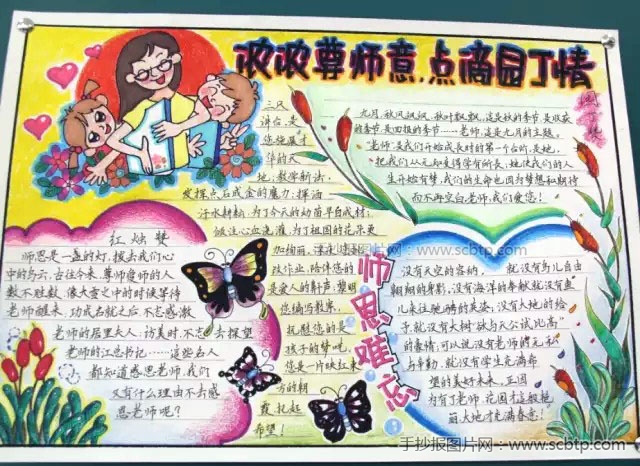 浓浓尊师意,点滴园丁情
园丁赞
三尺
讲台,是
您施展才
华的天
地:教学新法,
发挥点石成金的魔力;挥洒
汗水耕耘,为了今天的幼苗早成材;
倾注心血浇灌,为了祖国的花朵更
加绚丽。深夜
改作业,陪伴您的
是家人的鼾声;黎明
您编写教案,
抚慰您的是
孩子的梦呓。
您是一片映红东
方的朝
霞,托起
希望!
九月,秋风飒飒,秋叶飘飘,这是秋的季节,是收获
的季节,是回报的季节……老师,这是九月的主题。
"老师"是我们开始成长时的第一个台阶,是她,
把我们从无知变得学有所长,她使我们的人
生开始有梦,我们的生命也因为梦想和期待
而不再空白,老师,我们爱您!
红烛赞
师恩是一盏的灯,拨去我们心
中的乌云,古往今来,尊师爱师的人
数不胜数,像大雪之中的时候等待
老师醒来,功成名就之后不忘感激
老师的居里夫人;访美时,不忘去探望
老师的江总书记……这些名人
都知道感恩老师,我们
又有什么理由不去感
恩老师呢?
师恩难忘
没有天空的容纳, 就没有鸟儿自由
翱翔的身影;没有海洋的奉献就没有鱼
儿来往驰骋的英姿;没有大地的给
予,就没有大树"欲与天公试比高"
的豪情;可以说没有老师的无私
与辛勤,就没有学生充满希
望的美好未来。正因
为有了老师,花园才这般艳
丽,大地才充满春意!
手抄报图片网:www.scbtp.com
手抄报图片网:www.scbtp.com